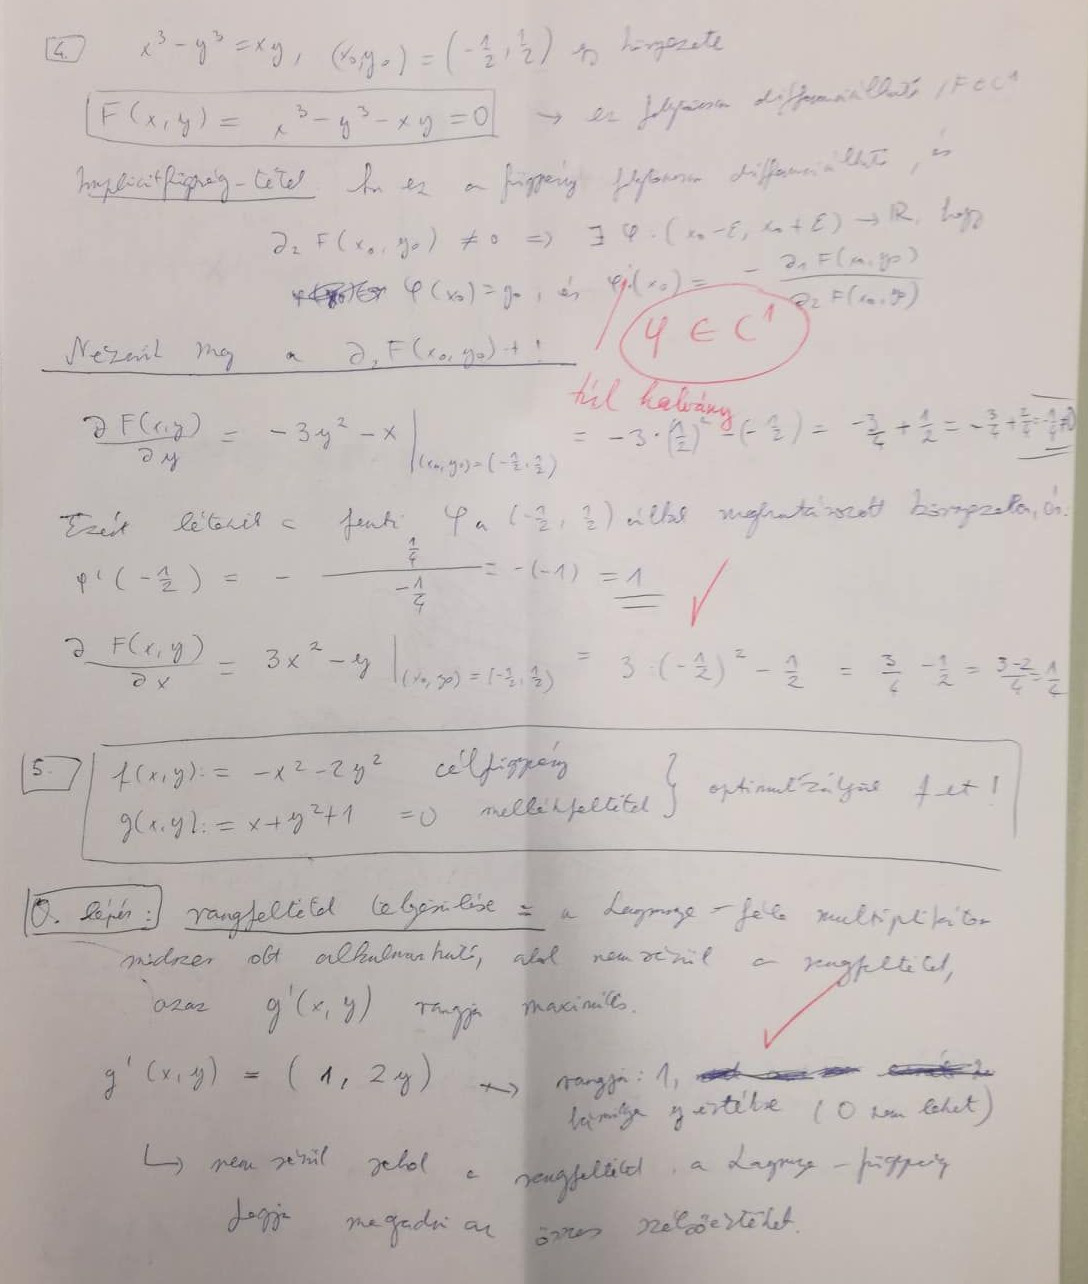 4. x³ - y³ = xy, (x₀,y₀) = (-1/2, 1/2) és környezete
F(x,y) = x³ - y³ - xy = 0 → ez folytonosan differenciálható, F ∈ C¹
Implicitfüggvény-tétel ha ez a függvény folytonosan differenciálható, és
∂₂F(x₀,y₀) ≠ 0 ⇒ ∃ φ: (x₀-ε, x₀+ε) → ℝ, hogy
φ(x₀) = y₀, és φ'(x₀) = - ∂₁F(x₀,y₀) / ∂₂F(x₀,y₀)
φ ∈ C¹
Nézzük meg a ∂₂F(x₀,y₀)-t!
túl halvány
∂F(x,y)/∂y = -3y² - x |(x₀,y₀)=(-1/2,1/2) = -3·(1/2)² - (-1/2) = -3/4 + 1/2 = -3/4 + 2/4 = -1/4 ≠ 0
Ezért létezik a fenti φ a (-1/2, 1/2) által meghatározott környezetben, és:
φ'(-1/2) = - (1/4)/(-1/4) = -(-1) = 1
∂F(x,y)/∂x = 3x² - y |(x₀,y₀)=(-1/2,1/2) = 3·(-1/2)² - 1/2 = 3/4 - 1/2 = (3-2)/4 = 1/4
5. f(x,y) := -x² - 2y² célfüggvény
g(x,y) := x + y² + 1 = 0 mellékfeltétel } optimalizáljuk f-et!
0. lépés: rangfeltétel teljesülése = a Lagrange-féle multiplikátor
módszer ott alkalmazható, ahol nem sérül a rangfeltétel,
azaz g'(x,y) rangja maximális.
g'(x,y) = (1, 2y) → rangja: 1,
bármilyen y értékre (0 nem lehet)
↳ nem sérül sehol a rangfeltétel, a Lagrange-függvény
fogja megadni az összes szélsőértéket.